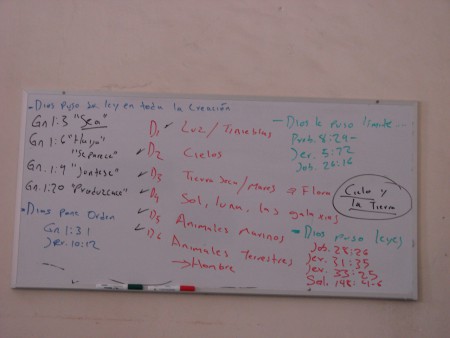 - Dios puso su ley en toda la Creación
Gn 1:3 "Sea"
Gn 1:6 "Haya"
"Separece"
Gn. 1:9 "Juntese"
Gn. 1:20 "Produzcase"
- Dios pone Orden
Gn 1:31
Jer. 10:12
D1 Luz / Tinieblas
D2 Cielos
D3 Tierra seca/mares → Flora
D4 Sol, luna, las galaxias
D5 Animales Marinos
D6 Animales Terrestres
→ Hombre
- Dios le puso límite...
Prob. 8:29-
Jer. 5:22
Job. 26:10
Cielo y
la Tierra
- Dios puso leyes
Job. 28:26
Jer. 31:35
Jer. 33:25
Sal. 148:4-6